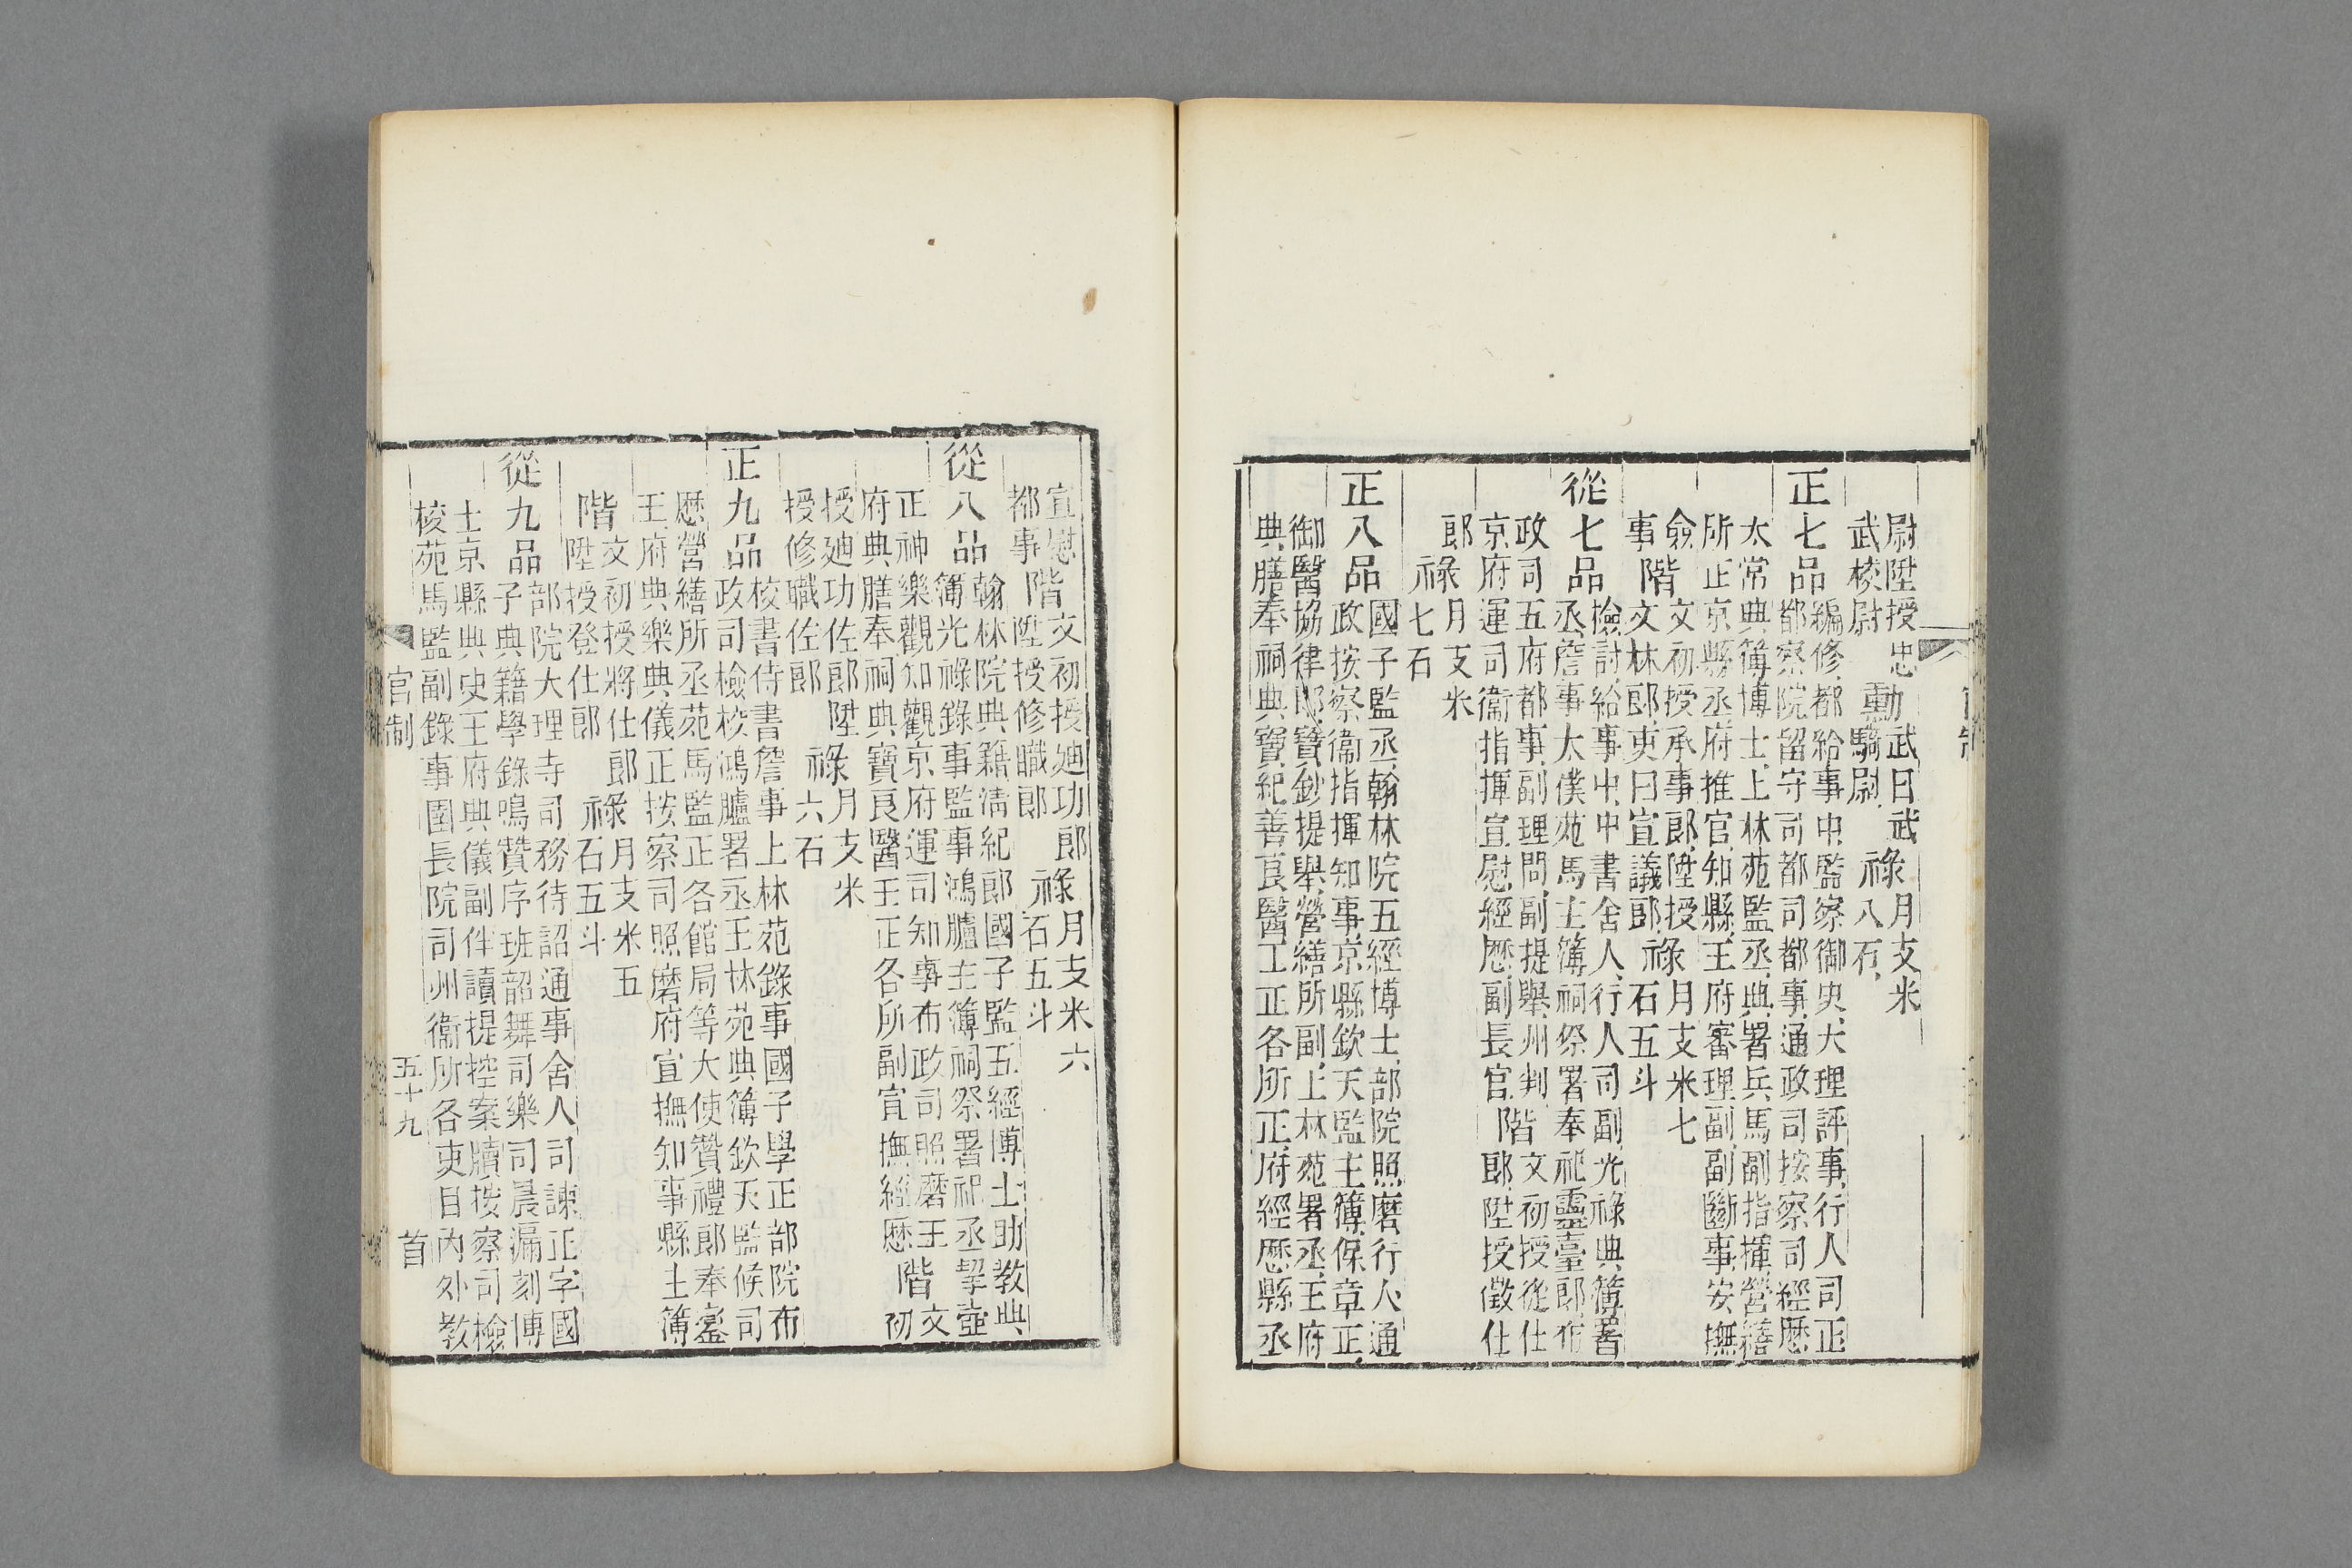 尉陞授忠勳武曰武祿月支米
武校尉勳騎尉祿八石
正七品編修都給事中監察御史大理評事行人司正
都察院留守司都事通政司按察司經歷
太常典簿博士上林苑監丞典署兵馬副指揮營繕
所正京縣丞府推官知縣王府審理副副斷事安撫
僉階文初授承事郎陞授祿月支米七
事階文林郎吏曰宣議郎祿石五斗
從七品檢討給事中中書舍人行人司副光祿典簿署
丞詹事太僕苑馬主簿祠祭署奉祀靈臺郎布
政司五府都事副理問副提舉州判階文初授從仕
京府運司衞指揮宣慰經歷副長官階郎陞授徵仕
郎祿月支米
祿七石
正八品國子監丞翰林院五經博士部院照磨行人通
政按察衞指揮知事京縣欽天監主簿保章正
御醫協律郎寶鈔提舉營繕所副上林苑署丞王府
典膳奉祠典寶紀善良醫工正各所正府經歷縣丞
宣慰階文初授迪功郎祿月支米六
都事階陞授修職郎祿石五斗
從八品翰林院典籍淸紀郎國子監五經博士助教典
簿光祿錄事監事鴻臚主簿祠祭署祀丞挈壺
正神樂觀知觀京府運司知事布政司照磨王階文
府典膳奉祠典寶良醫王正各所副宣撫經歷階初
授迪功佐郎陞祿月支米
授修職佐郎祿六石
正九品校書侍書詹事上林苑錄事國子學正部院布
政司檢校鴻臚署丞王林苑典簿欽天監候司
歷營繕所丞苑馬監正各館局等大使贊禮郎奉鑾
王府典樂典儀正按察司照磨府宣撫知事縣主簿
階文初授將仕郎祿月支米五
階陞授登仕郎祿石五斗
從九品部院大理寺司務待詔通事舍人司諫正字國
子典籍學錄鳴贊序班韶舞司樂司晨漏刻博
士京縣典史王府典儀副伴讀提控案牘按察司檢
校苑馬監副錄事圉長院司州衞所各吏目內外教
官制 五十九 首